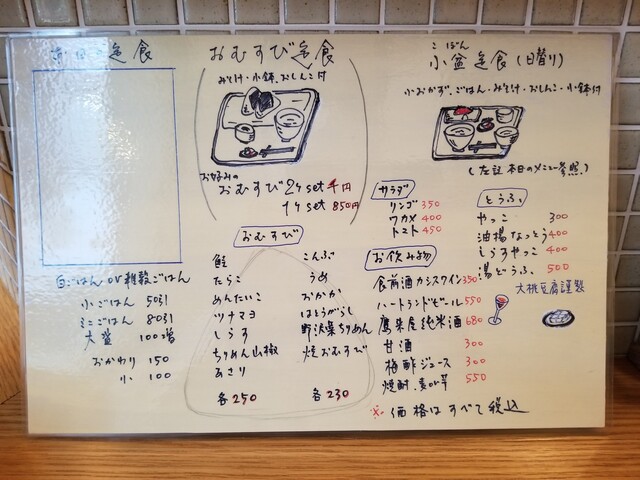 定食
白ごはん or 雑穀ごはん
小ごはん 50引
ミニごはん 80引
大盛 100増
おかわり 150
小 100
おむすび定食
みそ汁・小鉢・おしんこ付
お好みの
おむすび 2ケ set 千円
1ケ set 850円
おむすび
鮭
たらこ
めんたいこ
ツナマヨ
しらす
ちりめん山椒
あさり
各250
こんぶ
うめ
おかか
はとうがらし
野沢菜ちりめん
焼おむすび
各230
こぼん
小盆定食(日替り)
小おかず・ごはん・みそ汁・おしんこ・小鉢付
(左記 本日のメニュー参照)
サラダ
リンゴ 350
ワカメ 400
トマト 450
お飲み物
食前酒カシスワイン 350
ハートランドビール 550
鷹来屋純米酒 680
甘酒 300
梅酢ジュース 300
焼酎・麦or芋 550
とうふ
やっこ 300
油揚なっとう 400
しらすやっこ 400
湯どうふ 500
大桃豆腐謹製
※価格はすべて税込